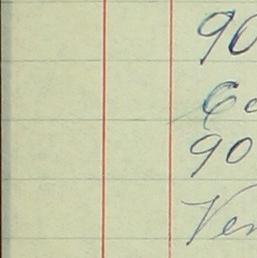 90
Co
90
Ver